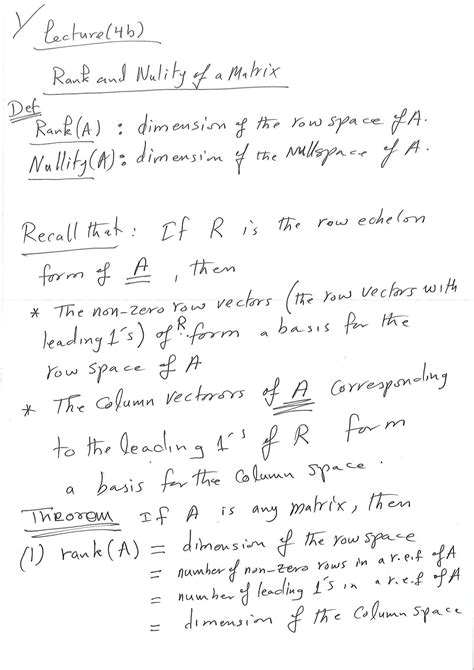 Lecture(4b)
Rank and Nulity of a Matrix
Def
Rank(A) : dimension of the row space of A.
Nullity(A): dimension of the Nullspace of A.
Recall that : If R is the row echelon
form of A , then
* The non-zero row vectors (the row vectors with
leading 1's) of R form a basis for the
row space of A
* The Column vectorors of A Corresponding
to the leading 1's of R form
a basis for the Column space.
Theorem If A is any matrix, then
(1) rank(A) = dimension of the row space
= number of non-zero rows in a r.e.f of A
= number of leading 1's in a r.e.f of A
= dimension of the Column space